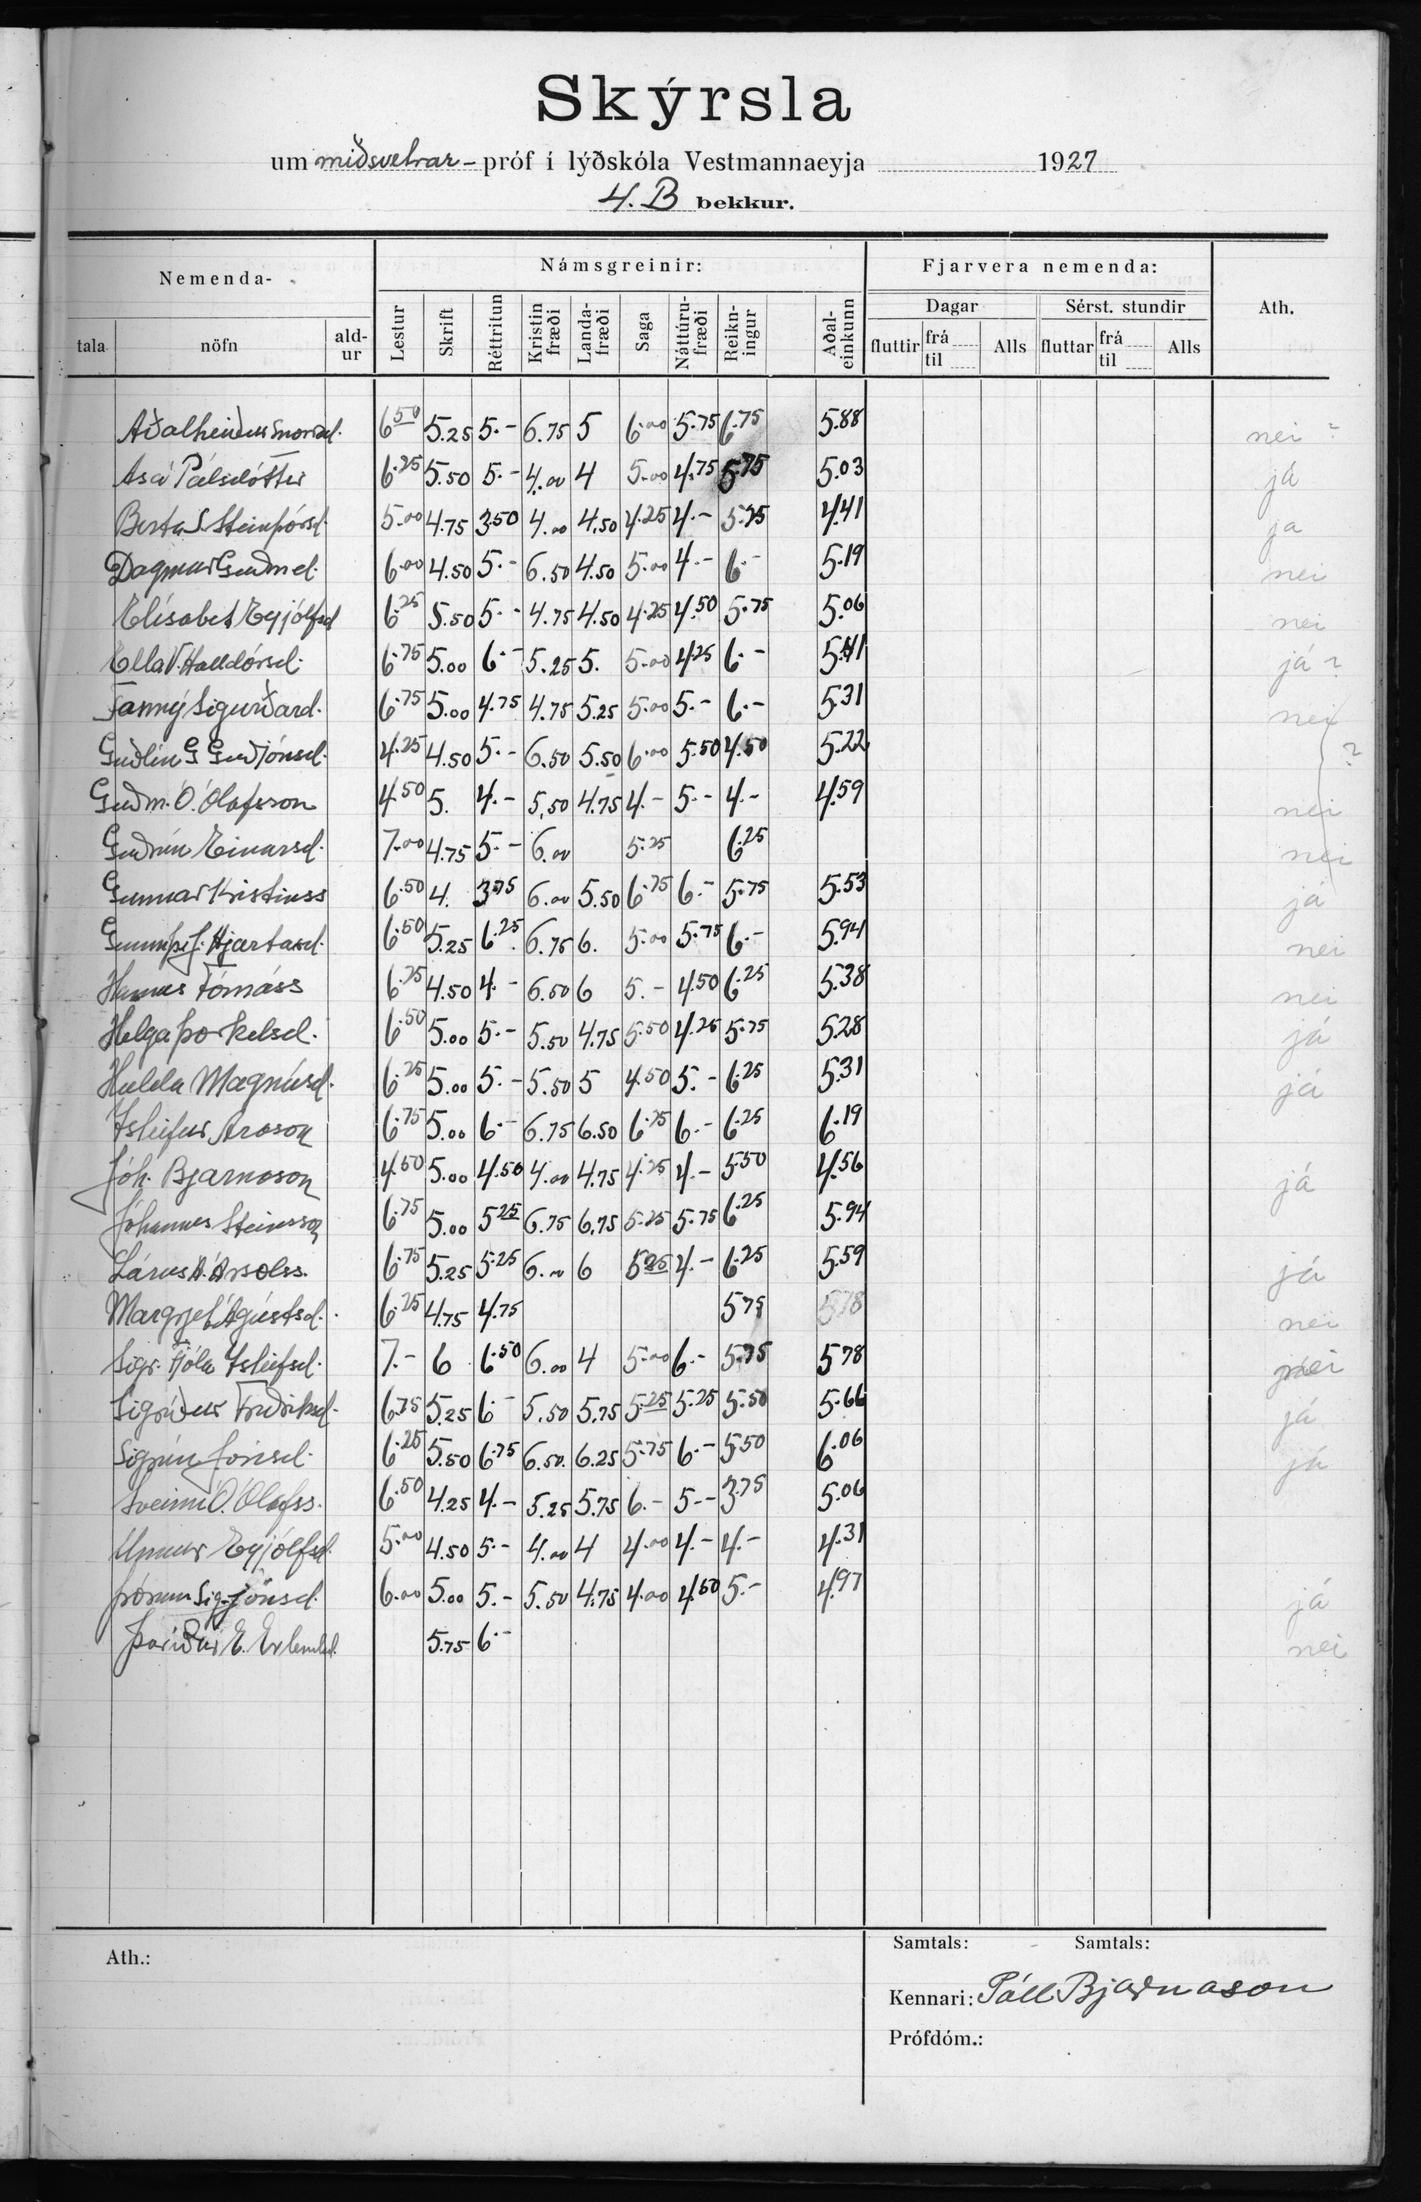 Skýrsla
um miðsvetrar- próf í lýðskóla Vestmannaeyja 1927
4. B bekkur.
Nemenda-
Námsgreinir:
Fjarvera nemenda:
Ath.
tala nöfn ald-ur Lestur Skrift Réttritun Kristin fræði Landa-fræði Saga Náttúru-fræði Reikn-ingur Aðal-einkunn
Dagar Sérst. stundir
fluttir frá til Alls fluttar frá til Alls
Aðalheiður 6.50 5.25 5.- 6.75 5 6.00 5.75 6.75 5.88 nei ?
Ása Pálsdóttir 6.25 5.50 5.- 4.00 4 5.00 4.75 5.75 5.03 já
Berta S. Steinþórsd. 5.00 4.75 3.50 4.00 4.50 4.25 4.- 5.25 4.41 ja
Dagmar Guðmd. 6.00 4.50 5.- 6.50 4.50 5.00 4.- 6.- 5.19 nei
Elísabet Eyjólfsd 6.25 5.50 5.- 4.75 4.50 4.25 4.50 5.75 5.06 nei
Ella V. Halldórsd. 6.75 5.00 6.- 5.25 5. 5.00 4.25 6.- 5.41 já ?
Fanný Sigurðard. 6.75 5.00 4.75 4.75 5.25 5.00 5.- 6.- 5.31 nei
Guðlín G Guðjónsd. 4.25 4.50 5.- 6.50 5.50 6.00 5.50 4.50 5.22 ?
Guðm. Ó. Ólafsson 4.50 5. 4.- 5.50 4.75 4.- 5.- 4.- 4.59 nei
Guðrún Einarsd. 7.00 4.75 5.- 6.00 5.25 6.25 nei
Gunnar Kristinss 6.50 4. 3.75 6.00 5.50 6.75 6.- 5.75 5.53 já
Gunnþ. J. Hjartard. 6.50 5.25 6.25 6.75 6. 5.00 5.75 6.- 5.94 nei
Hannes Tómáss 6.25 4.50 4.- 6.50 6 5.- 4.50 6.25 5.38 nei
Helga Þorkelsd. 6.50 5.00 5.- 5.50 4.75 5.50 4.25 5.75 5.28 já
Hulda Magnúsd. 6.25 5.00 5.- 5.50 5 4.50 5.- 6.25 5.31 já
Ísleifur Arason 6.75 5.00 6.- 6.75 6.50 6.25 6.- 6.25 6.19
Jóh. Bjarnason 4.50 5.00 4.50 4.00 4.75 4.25 4.- 5.50 4.56 já
Jóhannes Steinsson 6.75 5.00 5.25 6.75 6.75 5.25 5.75 6.25 5.94
Lárus Á. Ársælss. 6.75 5.25 5.25 6.00 6 5.25 4.- 6.25 5.59 já
Margrjet Ágústsd. 6.25 4.75 4.75 5.75 5.78 nei
Sigr. Fjóla Ísleifsd. 7.- 6 6.50 6.00 4 5.00 6.- 5.75 5.78 nei
Sigríður Friðriksd. 6.75 5.25 6.- 5.50 5.75 5.25 5.25 5.50 5.66 já
Sigrún Jónsd. 6.25 5.50 6.75 6.50. 6.25 5.75 6.- 5.50 6.06 já
Sveinn Ó. Ólafss. 6.50 4.25 4.- 5.25 5.75 6.- 5.- 3.75 5.06
Unnur Eyjólfsd. 5.00 4.50 5.- 4.00 4 4.00 4.- 4.- 4.31
Þórunn Sigjónsd. 6.00 5.00 5.- 5.50 4.75 4.00 4.50 5.- 4.97 já
Þuríður E. Erlendsd. 5.75 6.- nei
Ath.:
Samtals: Samtals:
Kennari: Páll Bjarnason
Prófdóm.: